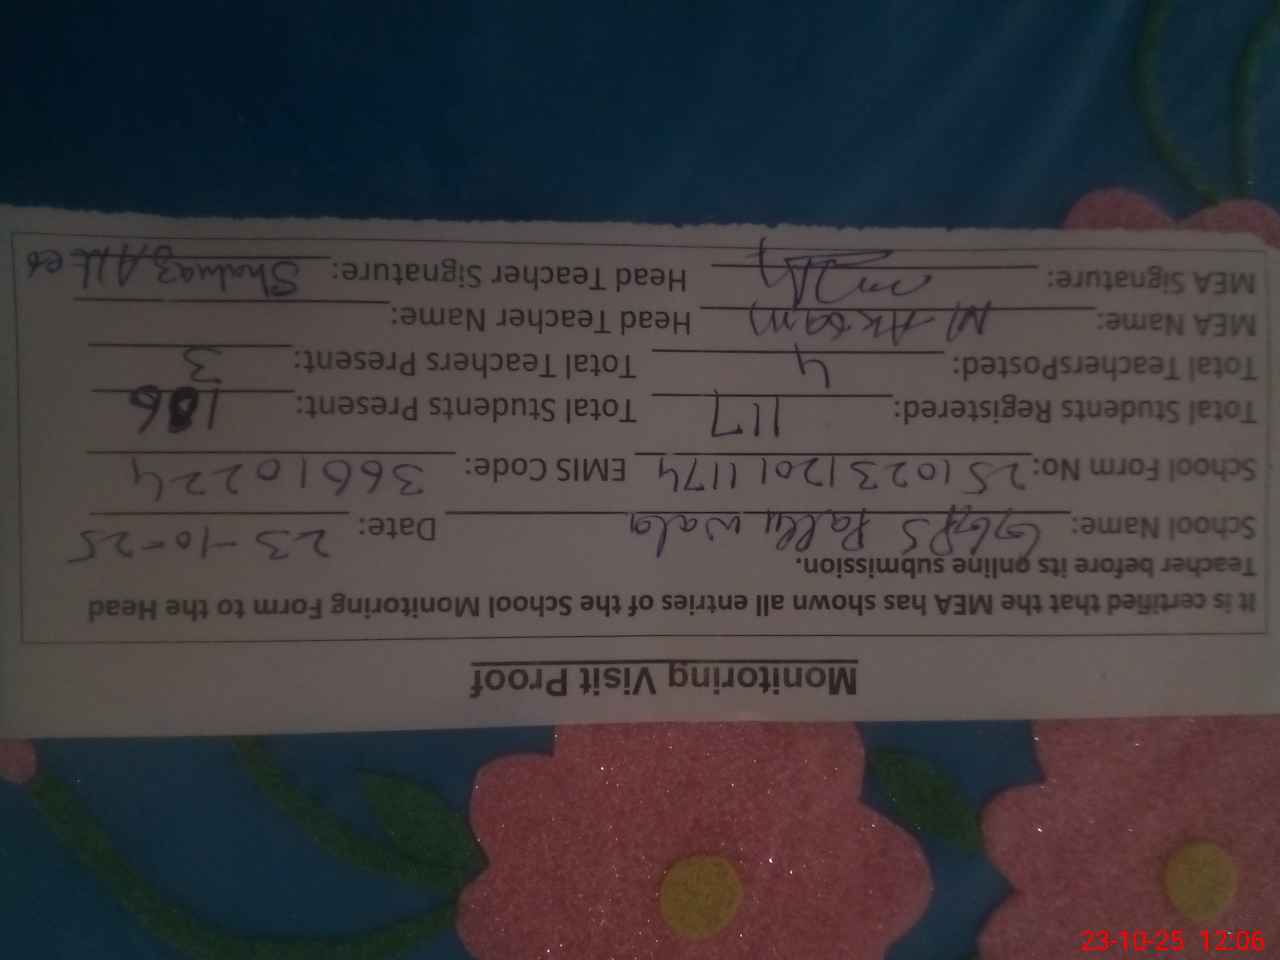 Monitoring Visit Proof
It is certified that the MEA has shown all entries of the School Monitoring Form to the Head
Teacher before its online submission.
School Name: GGPS Pally wala Date: 23-10-25
School Form No: 25102312011174 EMIS Code: 36610224
Total Students Registered: 117 Total Students Present: 106
Total TeachersPosted: 4 Total Teachers Present: 3
MEA Name: M Akram Head Teacher Name:
MEA Signature: Head Teacher Signature: Shahnaz
23-10-25 12:06